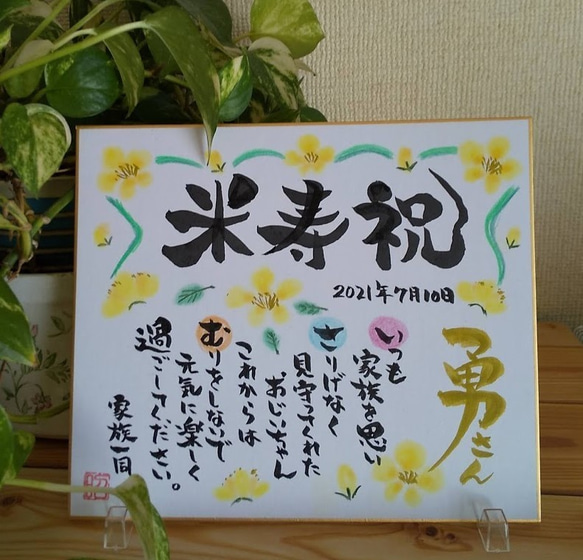 祝寿米
2021年7月10日
勇さん
いつも
家族を思い
さりげなく
見守ってくれた
おじいちゃん
これからは
むりをしないで
元気に楽しく
過ごしてください。
家族一同